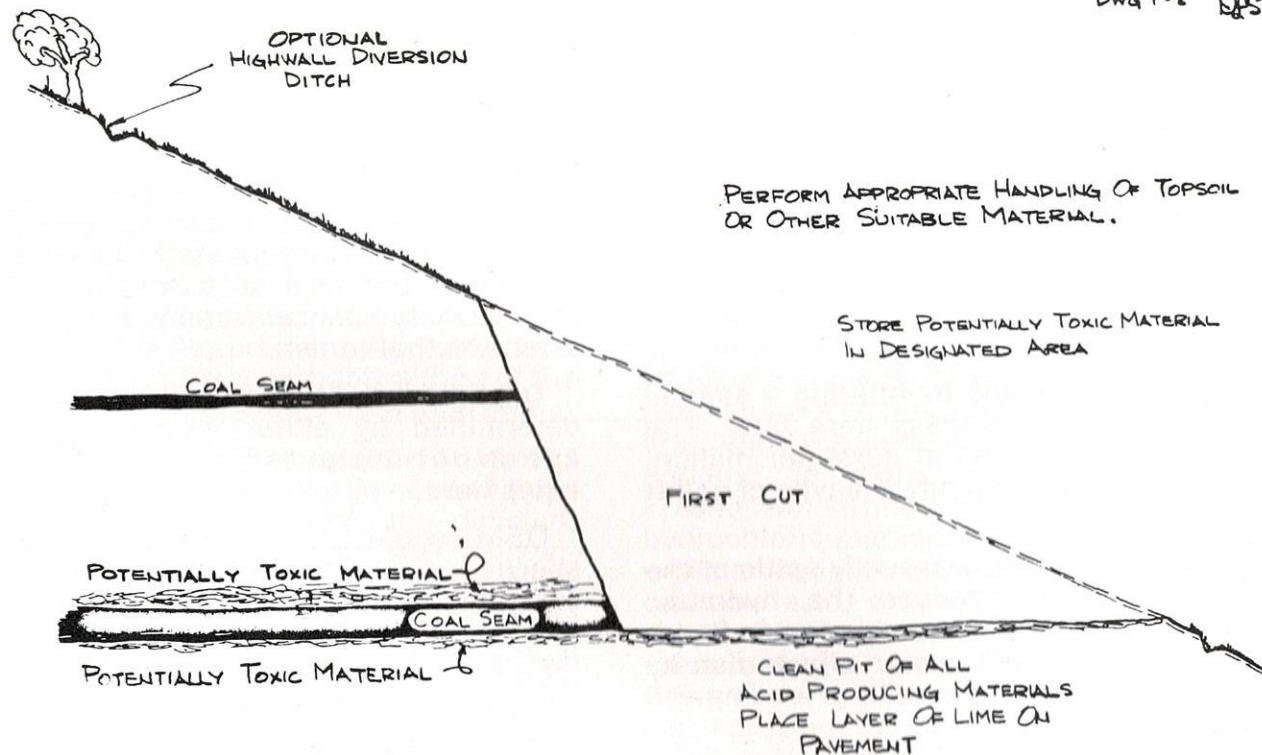 OPTIONAL
HIGHWALL DIVERSION
DITCH
PERFORM APPROPRIATE HANDLING OF TOPSOIL
OR OTHER SUITABLE MATERIAL.
STORE POTENTIALLY TOXIC MATERIAL
IN DESIGNATED AREA
COAL SEAM
FIRST CUT
POTENTIALLY TOXIC MATERIAL
COAL SEAM
POTENTIALLY TOXIC MATERIAL
CLEAN PIT OF ALL
ACID PRODUCING MATERIALS
PLACE LAYER OF LIME ON
PAVEMENT